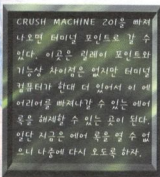 CRUSH MACHINE 201을 빠져
나오면 터미널 포인트로 갈 수
있다. 이곳은 릴레이 포인트와
기능상 차이점은 없지만 터미널
컴퓨터가 한대 더 있어서 이 에
어리어를 빠져나갈 수 있는 에어
록을 해제할 수 있는 곳이 된다.
일단 지금은 에어 록을 열 수 없
으니 나중에 다시 오도록 하자.